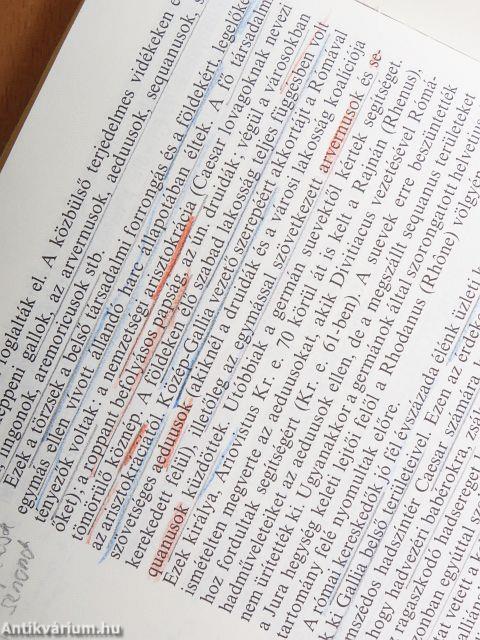 foglalták el. A közbülső terjedelmes vidékeken
gallok, az arvernusok, aeduusok, sequanusok,
lingonok, aremoricusok stb.
Ezek a törzsek a belső társadalmi forrongás és a földekért, legelőké
egymás ellen vívott állandó harc állapotában éltek. A fő társadalmi
tényezők voltak: a nemzetségi arisztokrácia (Caesar lovagoknak nevezi
őket) a roppant befolyásos papság, az ún. druidák, végül a városokban
tömörülő köznép. A földeken élő szabad lakosság teljes függésben volt
az arisztokráciától. Közép-Gallia vezető szerepéért akkortájt a Rómával
szövetséges eduusok (akiknél a druidák és a városi lakosság koalíciója
kerekedett felül), illetőleg az egymással szövetkezett arvernusok és se-
quanusok küzdöttek. Utóbbiak a germán suevektől kértek segítséget.
Ezek királya, Ariovistus Kr. e. 70 körül át is kelt a Rajnán (Rhenus),
ismételten megverte az aeduusokat, akik Divitiacus vezetésével Rómá-
hoz fordultak segítségért (Kr. e. 61-ben). A suevek erre beszüntették
hadműveleteiket az aeduusok ellen, de a megszállt sequanus területeket
nem ürítették ki. Ugyanakkor a germánok által szorongatott helvetius
a Jura hegység keleti lejtői felől a Rhodanus (Rhône) völgyén
tartomány felé nyomultak előre.
A római kereskedők jó fél évszázada élénk üzleti
ki Gallia belső területeivel. Ezen az
hadszíntér Caesar számára
Antikvárium.hu